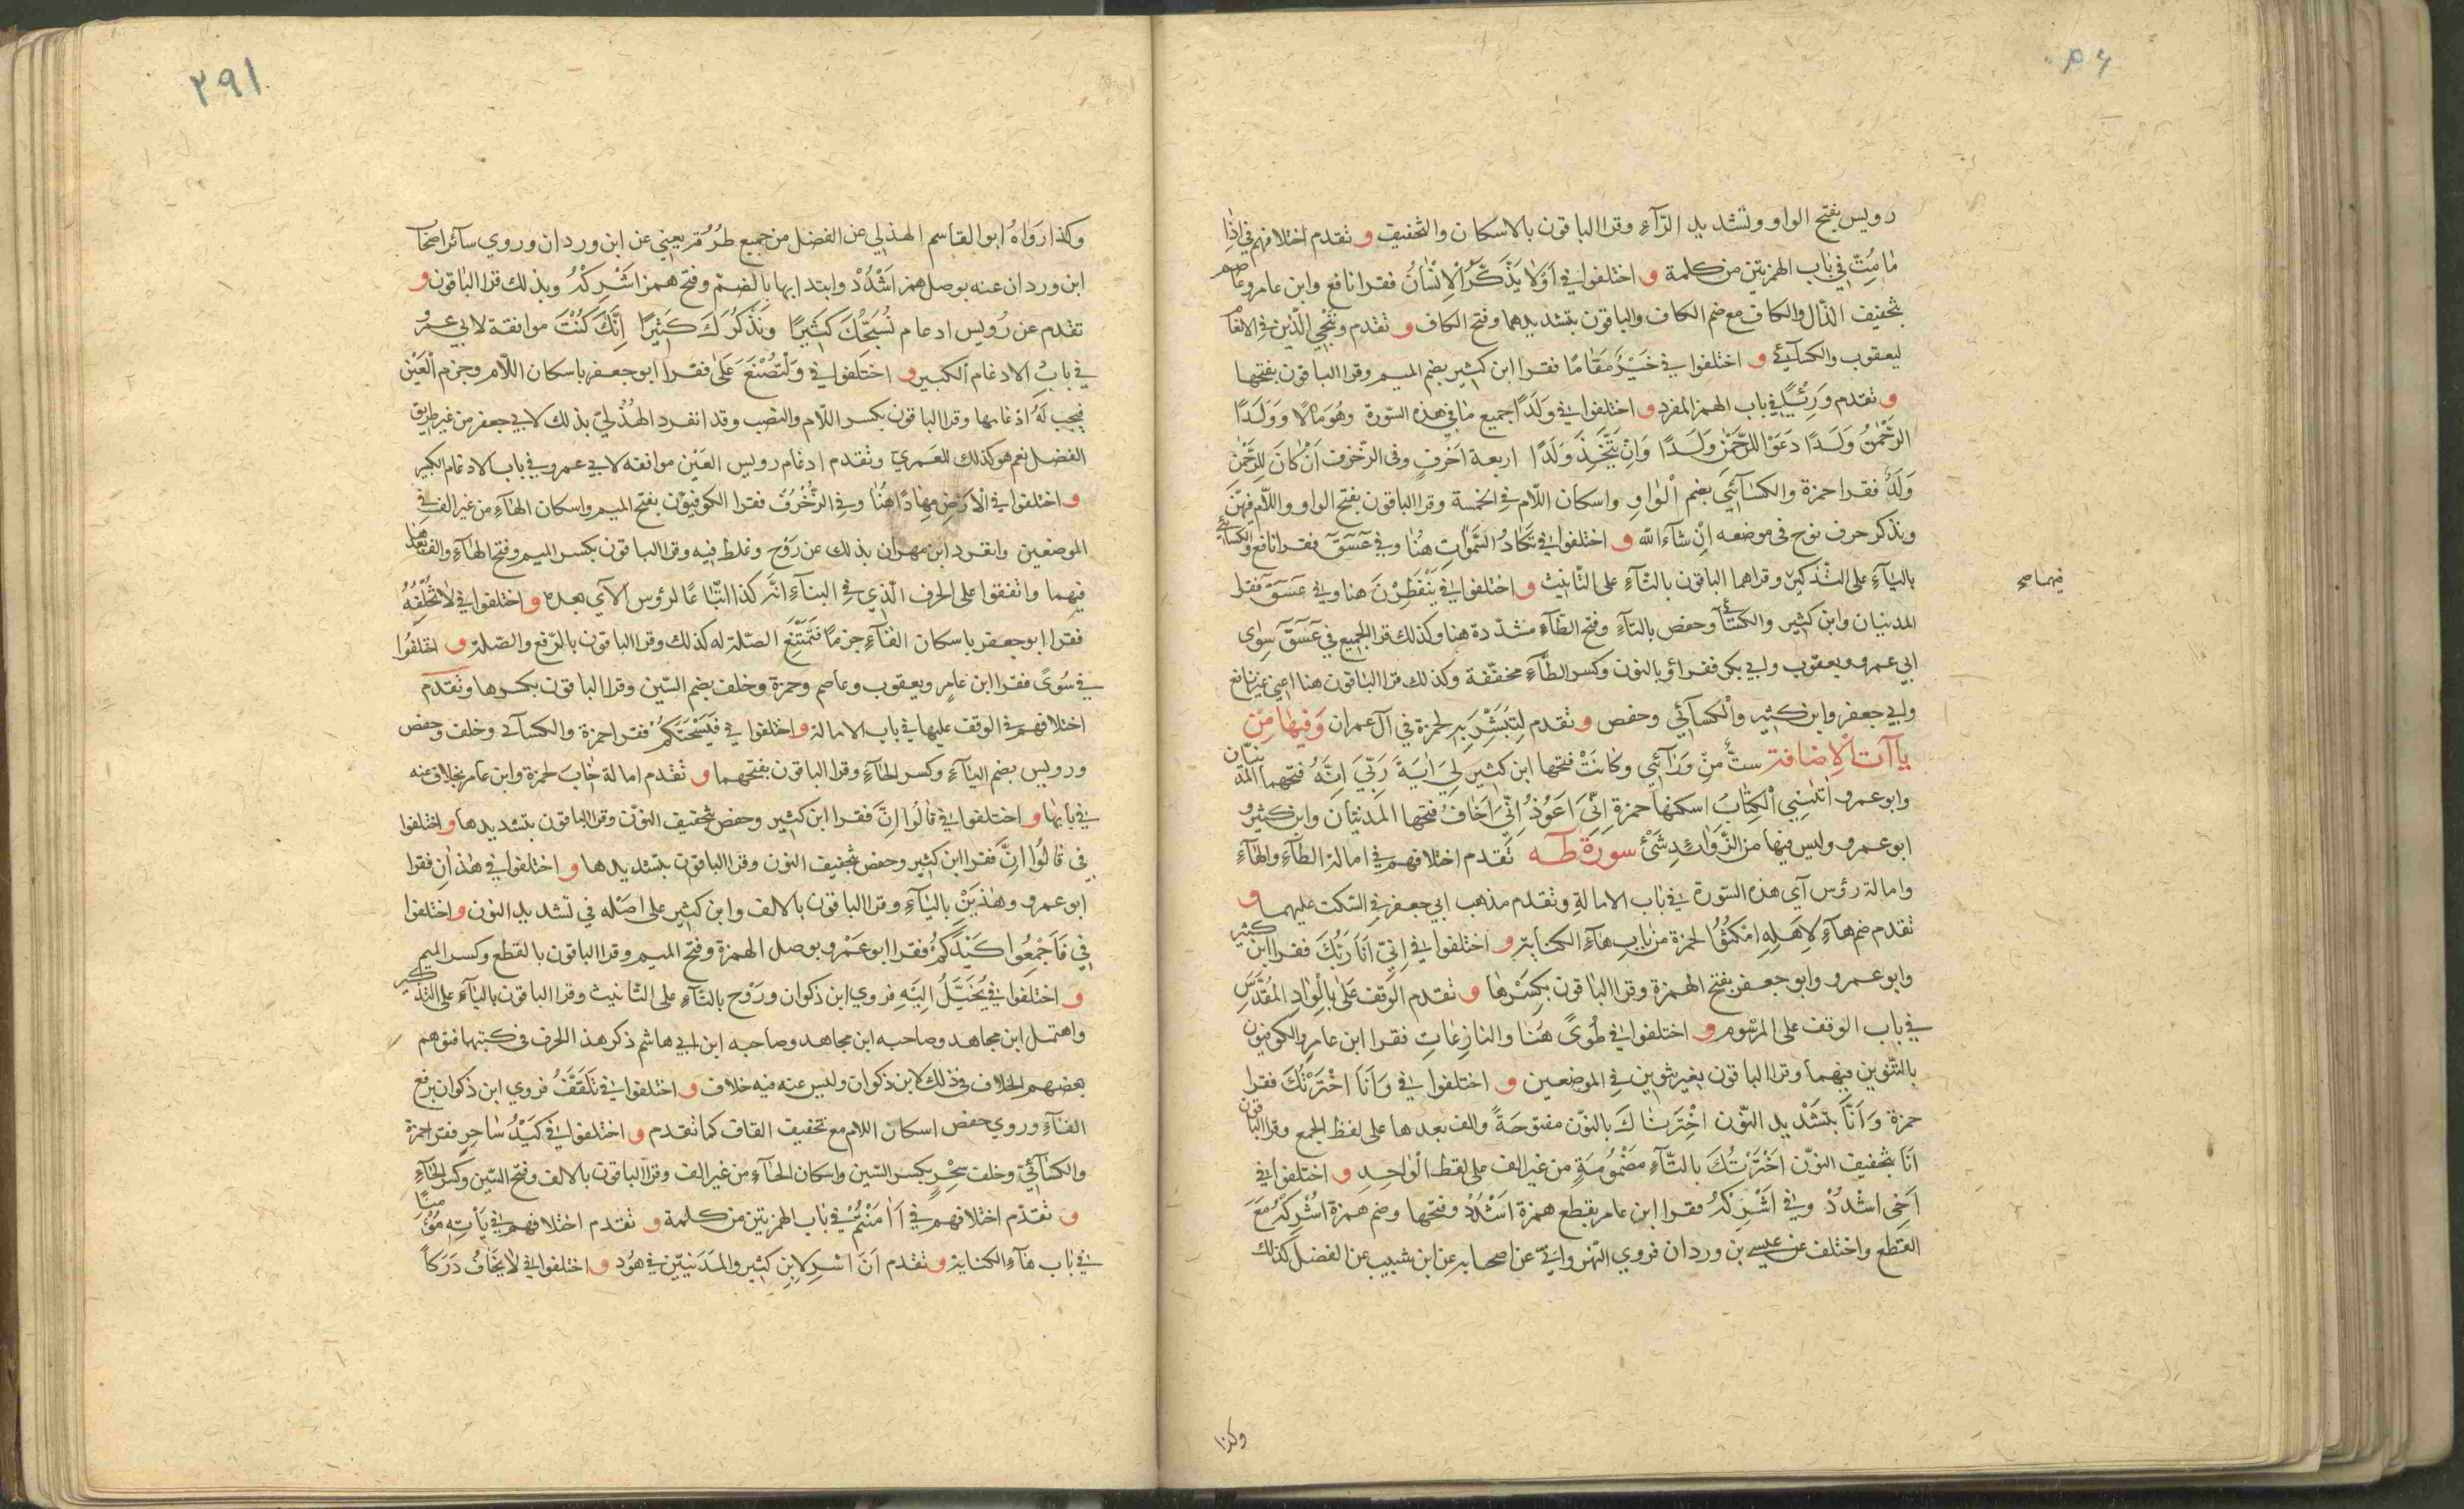 رويس بفتح الواو وتشديد الرّآءِ وقرا الباقون بالاسكان والتخفيف و تقدم اختلافهم في اِذٰا
مٰا مُتُّ في بٰاب الهمزتين من كلمة و اختلفوا في اَوَلٰا يَذَّكَّرُ الْاِنْسٰانُ فقرا نافع وابن عامر وعاصم
بتخفيف الذّال والكاف مع ضم الكاف والباقون بتشديدهما وفتح الكاف و تقدم ونُنَجّي الّذين في الانعام
ليعقوب والكسآئي و اختلفوا في خَيْرٌ مَقٰامًا فقرا ابن كثير بضم الميم وقرا الباقون بفتحها
و تقدم وَرِئْيًا في باب الهمز المفرد و اختلفوا في وَلَدًا جميع مٰا في هذه السّورة وهُوَ مٰالًا وَوَلَدًا
الرَّحْمٰنُ وَلَدًا دَعَوْا لِلرَّحْمٰنِ وَلَدًا وَانْ يَتَّخِذَ وَلَدًا اربعة احرف وفى الزّخرف اِنْ كٰانَ لِلرَّحْمٰنِ
وَلَدٌ فقرا حمزة والكسٰآئي بضم الْوٰاوِ واسكان اللّام في الخمسة وقرا الباقون بفتح الواو واللّام فيهنّ
ونذكر حرف نوح في موضعه اِنْ شآءَ الله و اختلفوا في تَكٰادُ السَّمٰوٰاتِ هُنٰا وفي عٓسٓقٓ فقرا نافع والكسائي
بالياٰءِ على التّذكير وقراهما الباقون بالتّآءِ على التّانيث و اختلفوا في يَنْفَطِرْنَ هنا وفي عٓسٓقٓ فقرا
فيهما صح
المدنيان وابن كثير والكسآئي وحفص بالتآءِ وفتح الطآءِ مشدّدة هنا وكذلك قرا الجميع في عٓسٓقٓ سِوٰى
ابي عمرو ويعقوب وابي بكر فقراؤ بالنون وكسر الطآءِ مخفّفة وكذلك قرا البٰاقون هنا اعني غير نافع
وابي جعفر وابن كثير والكسآئي وحفص و تقدم لِتُبَشِّرَ بِهِ لحمزة في آل عمران وَفيهٰا مِنْ
يٰاآت الْاِضافة ستٌّ مِنْ وَرٰآئِي وكٰانَتْ فتحها ابن كثير لِي اٰيَةً رَبِّيَ اِنَّهُ فتحهما المدنيّان
وابو عمرو اٰتٰنِىَ الْكِتٰابَ اسكنها حمزة اِنِّي اَعُوذُ اِنِّي اَخٰافُ فتحها المدنيّان وابن كثيرو
ابو عمرو وليس فيها من الزّوٰائدِ شَئْ سورة طٰه تقدم اختلافهم في امالة الطآءِ والهآءِ
وامالة رؤس آي هذه السّورة في بٰاب الامالةِ وتقدم مذهب ابي جعفر في السّكت عليهما و
تقدم ضم هآءِ لِاَهْلِهِ امْكُثُوا لحمزة من بٰابِ هٰآءِ الكناية و اختلفوا في اِنّي اَنَا رَبُّكَ فقرا ابن كثير
وابو عمرو وابو جعفر بفتح الهمزة وقرا البٰاقون بكسرها و تقدم الوقف عَلىٰ بِالْوٰادِ المُقَدَّسِ
في باب الوقف على المرسوم و اختلفوا في طُوًى هُنٰا والنازعٰاتِ فقرا ابن عامر والكوفيون
بالتّنوين فيهما وقرا الباقون بغير تنوين في الموضعين و اختلفوا في وَاَنَا اخْتَرْتُكَ فقرا
حمزة وَاَنَّا بتشديد النّون اخْتَرْنٰاكَ بالنّون مفتوحَةً والف بعدها على لفظ الجمع وقرا الباقون
اَنَا بتخفيف النوّن اخْتَرْتُكَ بالتّآءِ مَضْمُومَةٍ من غير الف على لفظ الْوٰاحِدِ و اختلفوا في
اَخِى اشْدُدْ وفي اَشْرِكْهُ فقرا ابن عامر بقطع همزة اَشْدُدْ وفتحها وضم همزة اُشْرِكْهُ مَعَ
القطع واختلف عن عيسى بن وردان فروي النّهر وانيّ عن اصحابه عن ابن شبيب عن الفضل كذلك
وكذا
٢٩١
وكذا روٰاهُ ابو القاسم الهذلي عن الفضل من جميع طُرُقه يعني عن ابن وردان وروي سآئر اصحاب
ابن وردان عنه بوصل همز اشْدُدْ وابتدا ابها بالضمّ وفتح همز اَشْرِكْهُ وبذلك قرا البٰاقون و
تقدم عن رُويس ادغام نُسَبِّحُكَ كَثِيرًا وَنَذْكُرَكَ كَثِيرًا اِنَّكَ كُنْتَ موافقة لابي عمرٍو
في بابِ الادغام الكبير و اختلفوا في وَلْتُصْنَعَ عَلٰى فقرا ابو جعفر باسكان اللّام وجزم الْعَيْن
فيجب لَهُ ادغامها وقرا الباقون بكسر اللّام والنصب وقد انفرد الهُذَليّ بذلك لابي جعفر من غير طريق
الفضل نعم هو كذلك للعمريّ وتقدم ادغام رويس العَيْن موافقه لابي عمرو في باب الادغام الكبير
و اختلفوا في الْاَرْض مِهٰادًا هُنٰا وفي الزّخرف فقرا الكوفيّون بفتح الميم واسكان الهٰآءِ من غير الف في
الموضعين وانفرد ابن مهران بذلك عن رَوْح وغلط فيه وقرا الباقون بكسر الميم وفتح الهٰآءِ والف بعدها
فيهما واتفقوا على الحرف الّذي في النبآءِ انّه كذا اتّباعًا لرؤس الآي بعده و اختلفوا في لٰا نُخْلِفُهُ
فقرا ابو جعفر باسكان الفآءِ جزمًا فَتَمْتَنِعُ الصّلة له كذلك وقرا الباقون بالرّفع والصّلة و اختلفوا
في سُوًى فقرا ابن عامر ويعقوب وعاصم وحمزة وخلف بضم السّين وقرا الباقون بكسرها وتقدم
اختلافهم في الوقف عليها في باب الامالة و اختلفوا في فَيُسْحِتَكُمْ فقرا حمزة والكسآئ وخلف وحفص
ورويس بضم اليآءِ وكسر الحآءِ وقرا الباقون بفتحهما و تقدم امالة خٰابَ لحمزة وابن عامر بخلاف عنه
في بابها و اختلفوا في قٰالُوا اِنَّ فقرا ابن كثير وحفص بتخفيف النوّن وقرا الباقون بتشديدها و اختلفوا
في قٰالُوا اِنَّ فقرا ابن كثير وحفص بتخفيف النون وقرا الباقون بتشديدها و اختلفوا في هٰذٰانِ فقرا
ابو عمرو وهٰذَيْنِ باليآءِ وقرا الباقون بالالف وابن كثير على اصله في تشديد النون و اختلفوا
في فَاَجْمِعُوا كَيْدَكُمْ فقرا ابو عَمْرو بوصل الهمزة وفتح الميم وقرا الباقون بالقطع وكسر الميم
و اختلفوا في يُخَيَّلُ اِلَيْهِ فروي ابن ذكوان وَرَوْح بالتآءِ على التّانيث وقرا الباقون باليآءِ على التذكير
واهتمل ابن مجاهد وصاحبه ابن مجاهد وصاحبه ابن ابي هاشم ذكر هذا الحرف في كتبهما فتوهم
بعضهم الخلاف في ذلك لابن ذكوان وليس عنه فيه خلاف و اختلفوا في تَلْقَفُ فروي ابن ذكوان برفع
الفآءِ وروي حفص اسكان اللام مع تخفيف القاف كما تقدم و اختلفوا في كَيْدُ سٰاحِرٍ فقرا حمزة
والكسٰآئيّ وخلف سِحْرٍ بكسر السّين واسكان الحٰآءِ من غير الف وقرا الباقون بالالف وفتح السّين وكسر الحٰآءِ
و تقدّم اختلافهم في أَاٰمَنْتُمْ في بٰاب الهمزتين من كلمة و تقدم اختلافهم في يَأْتِهِ مُؤْمِنًا
في بٰاب هٰآءِ الكناية و تقدم اَنَّ اَسْرِ لابن كثير والمدَنييّن في هُود و اختلفوا في لٰا تَخٰافُ دَرَكًا